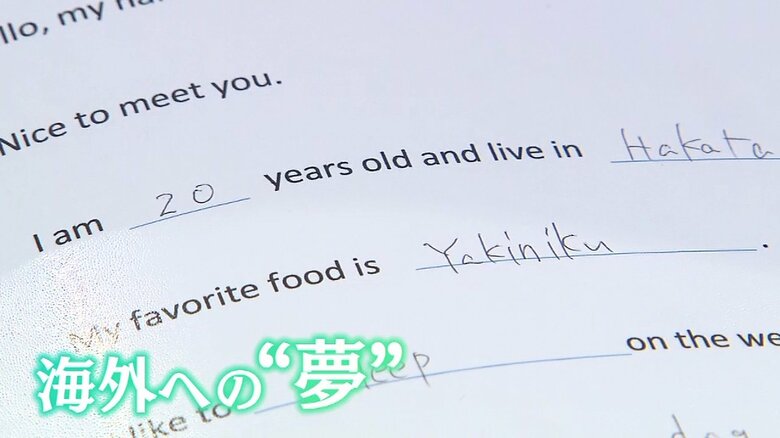 llo, my
Nice to meet you.
I am 20 years old and live in Hakata
My favorite food is Yakiniku.
like to on the we
海外への“夢”